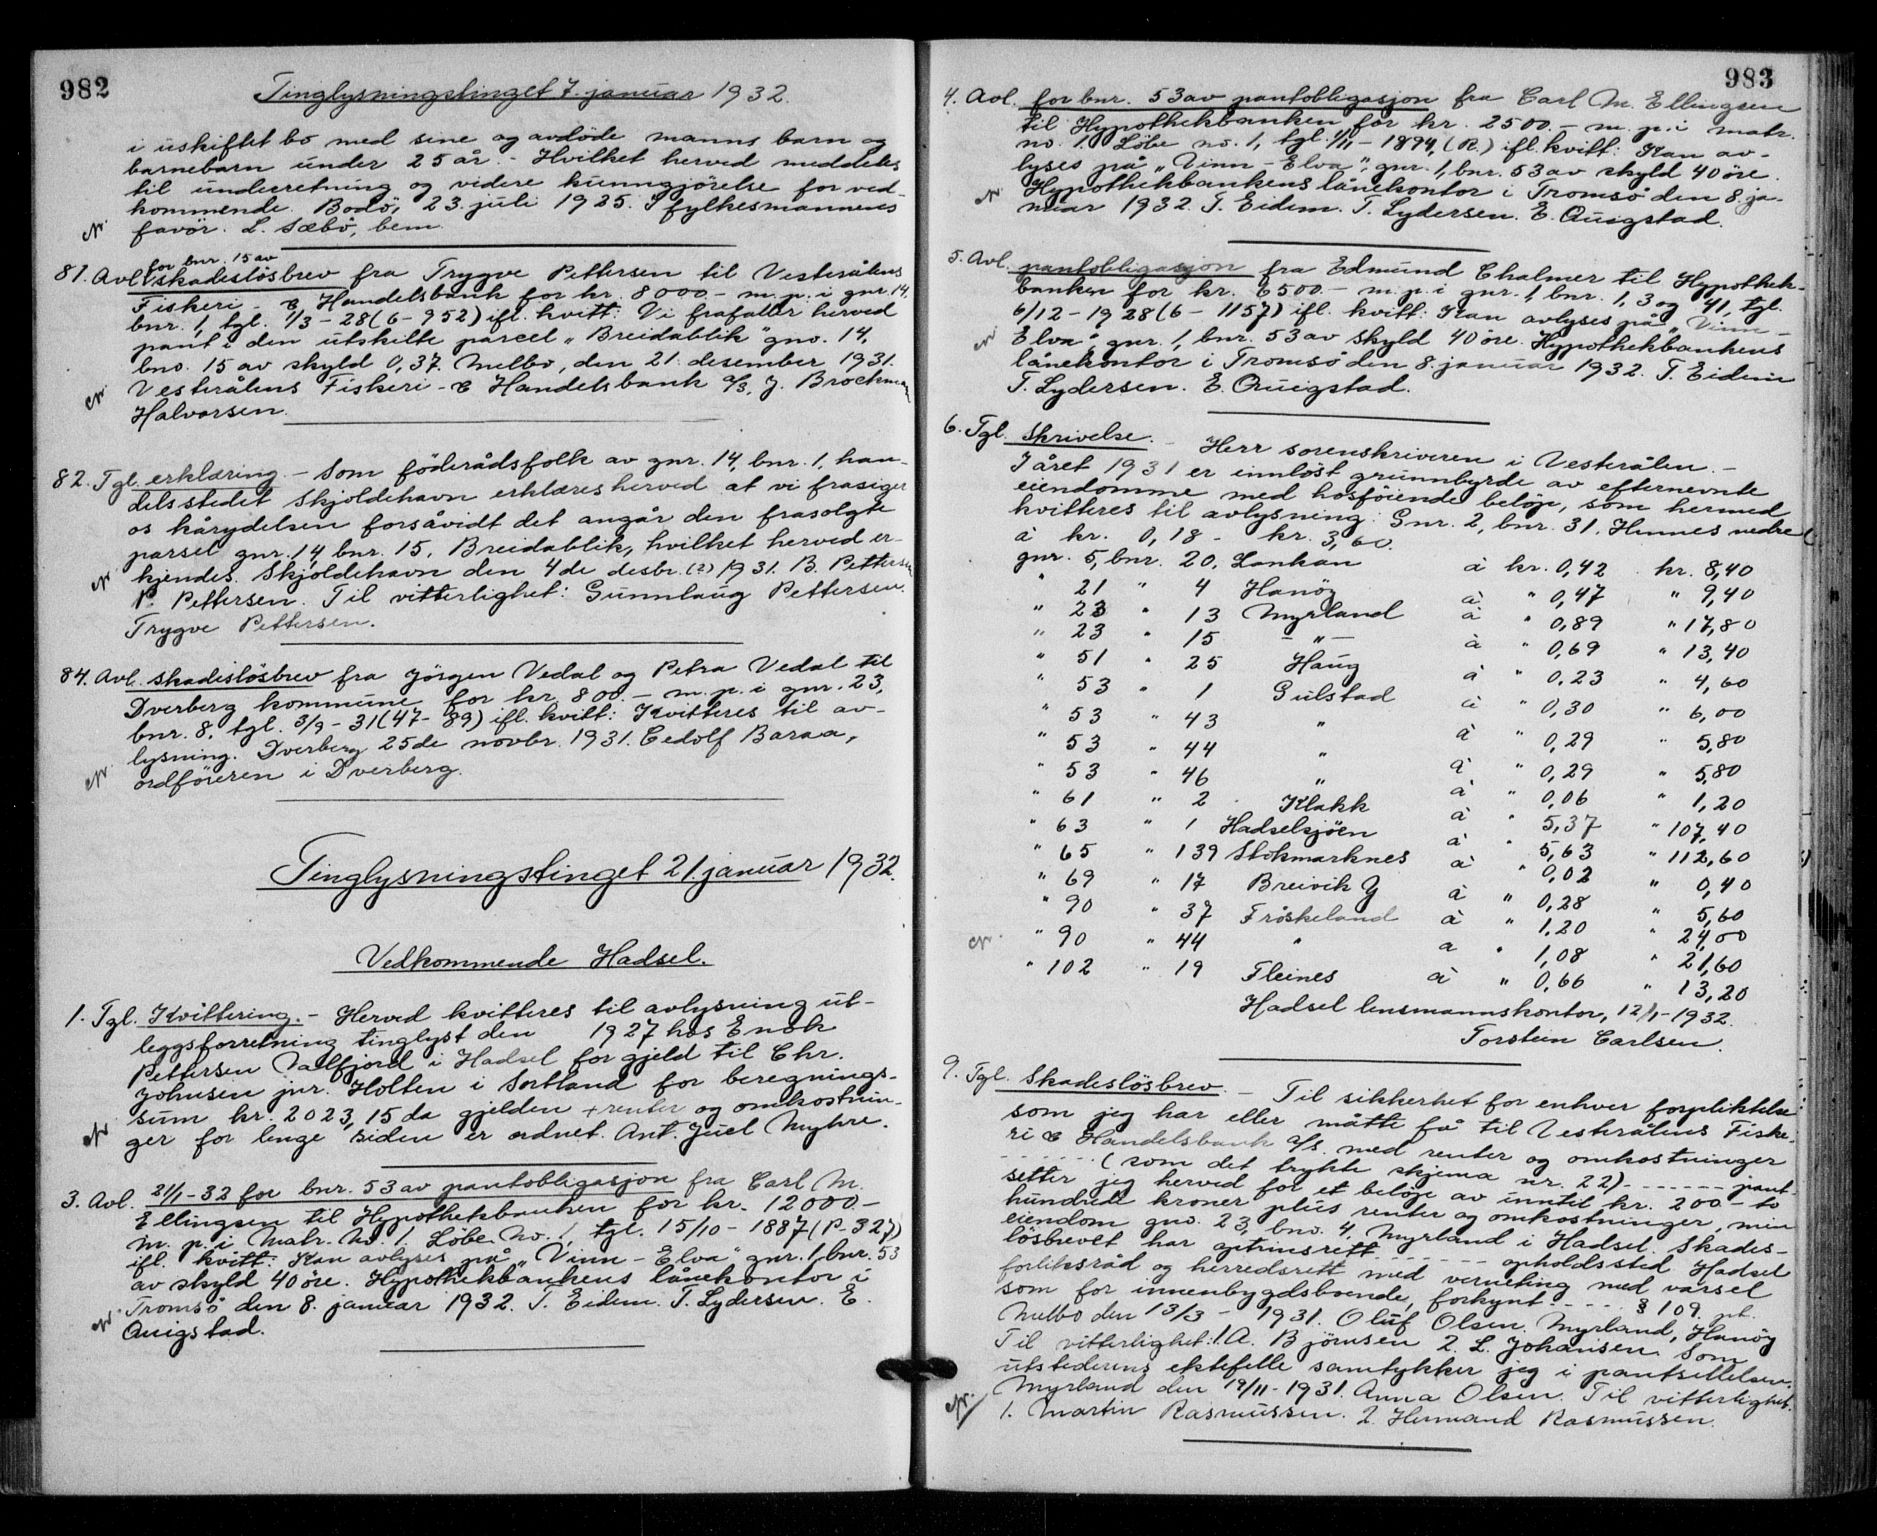 982
Tinglysningstinget 7. januar 1932.
i uskiftet bo med sine og avdöde manns barn og
barnebarn under 25 år. - Hvilket herved meddeles
til underretning og videre kunngjörelse for ved-
kommende. Bodö, 23. juli 1925. I fylkesmannens
favör. L. Sæbö, bem.
for bnr. 15 av
81. Avl. skadeslösbrev fra Trygve Pettersen til Vesterålens
Fiskeri- & Handelsbank for kr. 8000.- m. p. i gnr. 14,
bnr. 1, tgl. 1/3-28 (6-952) ifl. kvitt: Vi frafaller herved
pant i den utskilte parcel "Breidablik" gno. 14,
bno. 15 av skyld 0,37. Melbo, den 21. desember 1931.
Vesterålens Fiskeri- & Handelsbank A/S, J. Brochmann
Halvorsen.
82. Tgl. erklæring. - Som föderådsfolk av gnr. 14, bnr. 1, han-
delsstedet Skjoldehavn erklæres herved at vi frasiger
os kårydelsen forsåvidt det angår den frasolgte
parsel gnr. 14, bnr. 15, Breidablik, hvilket herved er-
kjendes. Skjoldehavn den 4de desbr. (?) 1931. B. Pettersen
P. Pettersen. Til vitterlighet: Gunnlaug Pettersen.
Trygve Pettersen.
84. Avl. skadeslösbrev fra Jörgen Vedal og Petra Vedal til
Dverberg kommune for kr. 800.- m. p. i gnr. 23,
bnr. 8, tgl. 3/9-31 (47-89) ifl. kvitt: Kvitteres til av-
lysning. Dverberg 25de novbr. 1931. Cedolf Baraa,
ordföreren i Dverberg.
Tinglysningstinget 21. januar 1932.
Vedkommende Hadsel.
1. Tgl. Kvittering. - Herved kvitteres til avlysning ut-
leggsforretning tinglyst den 1927 hos Enok
Pettersen Valfjord i Hadsel for gjeld til Chr.
Johnsen jnr. Holten i Sortland for beregnings-
sum kr. 2023,15 da gjelden + renter og omkostnin-
ger for lenge siden er ordnet. Ant. Juel Myhre.
3. Avl. 21/1-32 for bnr. 53 av pantobligasjon fra Carl M.
Ellingsen til Hypothekbanken for kr. 12000.-
m. p. i Matr. No. 1. Löbe No. 1, tgl. 15/10-1887 (P-327)
ifl. kvitt: Kan avlyses på "Vinn-Elva" gnr. 1, bnr. 53
av skyld 40 öre. Hypothekbankens lånekontor i
Tromsö den 8. januar 1932. T. Eidem. T. Lydersen. E.
Quigstad.
983
4. Avl. for bnr. 53 av pantobligasjon fra Carl M. Ellingsen
til Hypothekbanken for kr. 2500.- m. p. i matr.
no. 1. Löbe no. 1, tgl. 1/11-1894, (R.) ifl. kvitt: Kan av-
lyses på "Vinn-Elva", gnr. 1, bnr. 53 av skyld 40 öre.
Hypothekbankens lånekontor i Tromsö den 8. ja-
nuar 1932. T. Eidem. T. Lydersen. E. Quigstad.
5. Avl. pantobligasjon fra Edmund Chalmer til Hypothek-
banken for kr. 6500.- m. p. i gnr. 1, bnr. 1, 3 og 41, tgl.
6/12-1928 (6-1157) ifl. kvitt: Kan avlyses på "Vinn-
Elva" gnr. 1, bnr. 53 av skyld 40 öre. Hypothekbankens
lånekontor i Tromsö den 8. januar 1932. T. Eidem
T. Lydersen. E. Quigstad.
6. Tgl. Skrivelse. - Herr sorenskriveren i Vesterålen. -
I året 1931 er innlöst grunnbyrde av efternevnte
eiendomme med hosföiende belöp, som hermed
kvitteres til avlysning: Gnr. 2, bnr. 31, Hennes nedre
à kr. 0,18 - kr. 3,60.
gnr. 5, bnr. 20, Lankan à kr. 0,42 kr. 8,40
" 21 " 4 Hanöy à " 0,47 " 9,40
" 23 " 13 Myrland à " 0,89 " 17,80
" 23 " 15 " à " 0,69 " 13,40
" 51 " 25 Haug à " 0,23 " 4,60
" 53 " 1 Gulstad à " 0,30 " 6,00
" 53 " 43 " à " 0,29 " 5,80
" 53 " 44 " à " 0,29 " 5,80
" 53 " 46 " à " 0,06 " 1,20
" 61 " 2 Klakk à " 5,37 " 107,40
" 63 " 1 Hadselsjöen à " 5,63 " 112,60
" 65 " 139 Stokmarknes à " 0,02 " 0,40
" 69 " 17 Breivik Y à " 0,28 " 5,60
" 90 " 37 Fröskeland à " 1,20 " 24,00
" 90 " 44 " à " 1,08 " 21,60
" 102 " 19 Fleines à " 0,66 " 13,20
Hadsel lensmannskontor, 12/1-1932.
Torstein Carlsen.
9. Tgl. Skadeslösbrev. - Til sikkerhet for enhver forpliktelse
som jeg har eller måtte få til Vesterålens Fiske-
ri & Handelsbank A/S. med renter og omkostninger
- - - - - - (som det trykte skjema nr. 22) - - - - - - pant-
setter jeg herved for et belöp av inntil kr. 200.- to
hundrede kroner plus renter og omkostninger, min
eiendom gno. 23, bno. 4, Myrland i Hadsel. Skades-
lösbrevet har optrinsrett - - - - opholdssted Hadsel
forliksråd og herredsrett med verneting med varsel
som for innenbygdsboende, forkynt - - - - § 109. pt.
Melbo den 13/3-1931. Oluf Olsen, Myrland, Hanöy
Til vitterlighet: 1. A. Björnsen 2. L. Johansen. Som
utstederens ektefelle samtykker jeg i pantsettelsen.
Myrland den 19/11-1931. Anna Olsen. Til vitterlighet.
1. Martin Rasmussen. 2. Hermand Rasmussen.